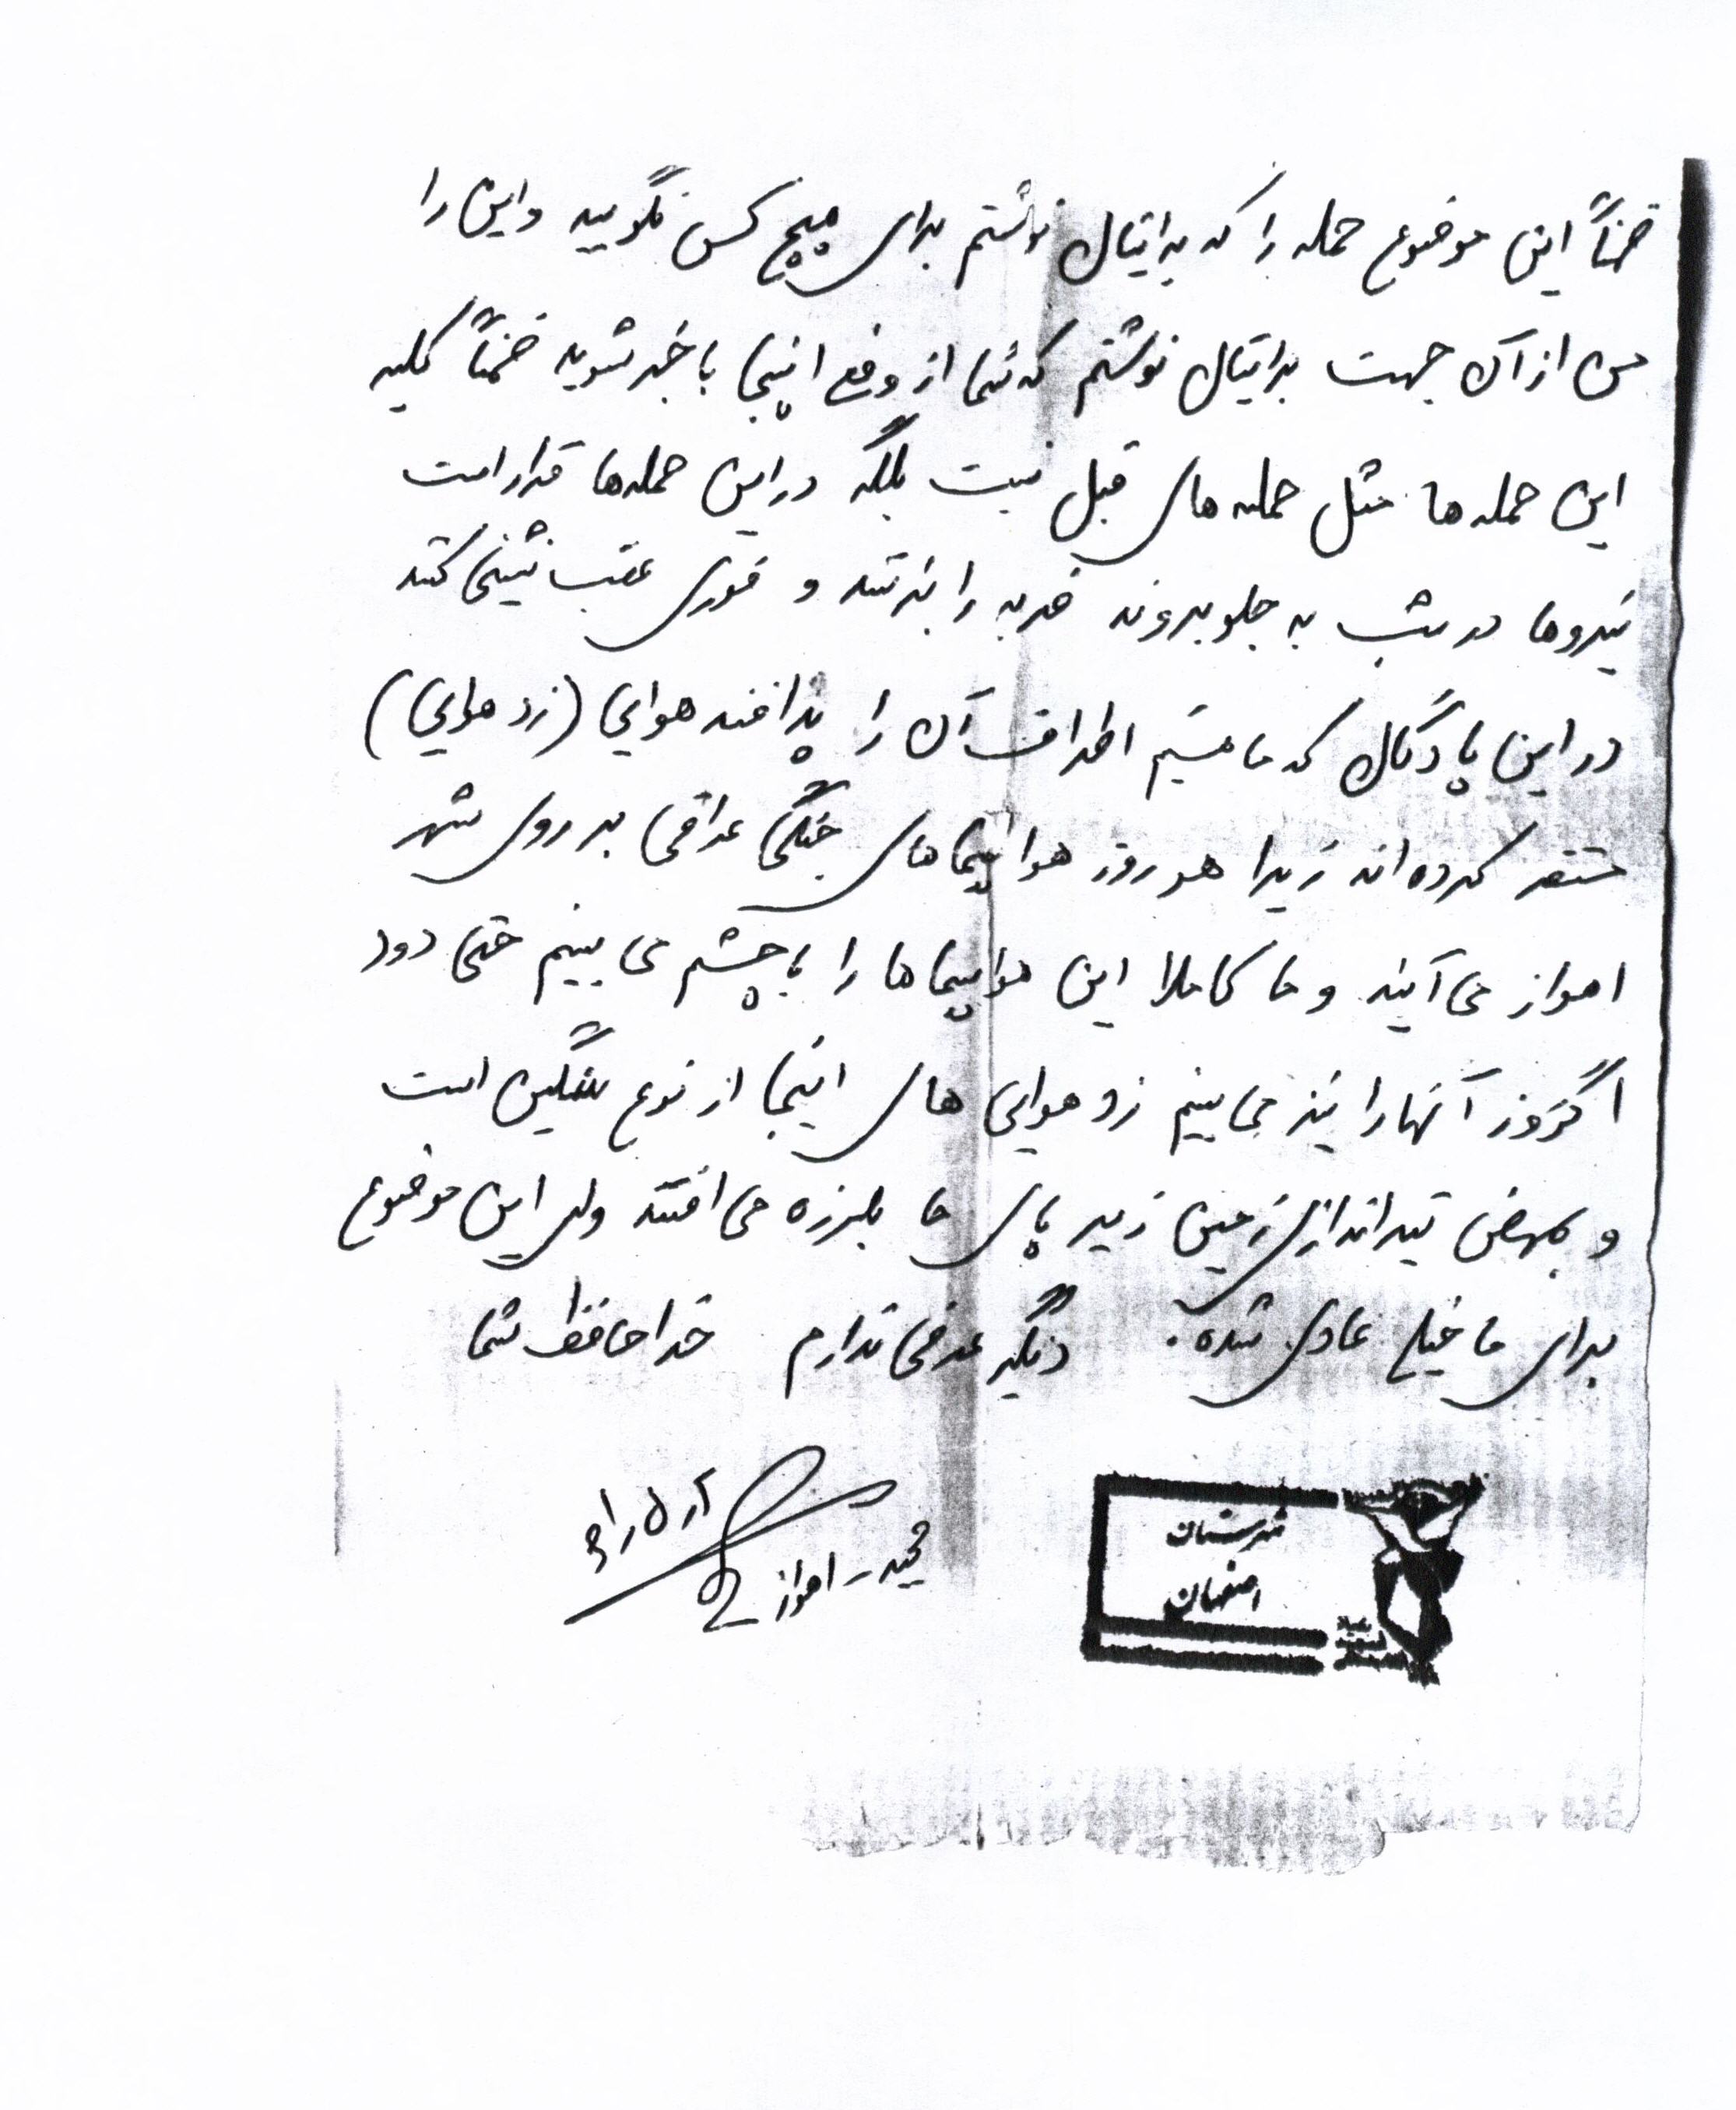 ضمناً این موضوع حمله را که برایتان نوشتم برای هیچ کس نگویید و این را
من از آن جهت برایتان نوشتم که شما از وضع اینجا با خبر شوید ضمناً کلیه
این حمله ها مثل حمله های قبل نیست بلکه در این حمله ها قرار است
نیروها در شب به جلو بروند ضربه را بزنند و فوری عقب نشینی کنند
در این پادگان که ما هستیم اطراف آن را پدافند هوایی (زد هوایی)
مستقر کرده اند زیرا هر روز هواپیماهای جنگی عراقی به روی شهر
اهواز می آیند و ما کاملا این هواپیماها را با چشم می بینیم حتی دود
اگزوز آنها را نیز می بینیم زد هوایی های اینجا از نوع سنگین است
و بمحض تیراندازی زمین زیر پای ما بلرزه می افتد ولی این موضوع
برای ما خیلی عادی شده. دیگر عرضی ندارم خداحافظ شما
مجید - اهواز
شهرستان
اصفهان